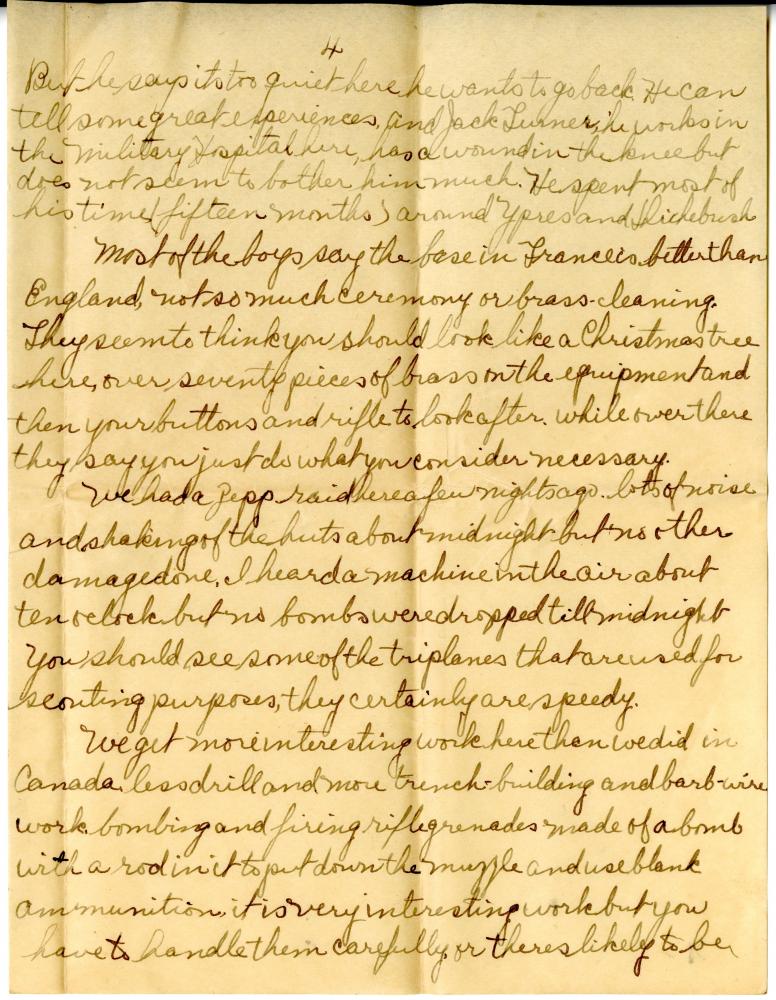 4
But he says its too quiet here he wants to go back. He can
tell some great experiences, and Jack Turner, he works in
the Military Hospital here, has a wound in the knee but
does not seem to bother him much. He spent most of
his time (fifteen months) around Ypres and
Most of the boys say the base in France is better than
England, not so much ceremony or brass-cleaning.
They seem to think you should look like a Christmas tree
here, over seventy pieces of brass on the equipment and
then your buttons and rifle to look after. while over there
they say you just do what you consider necessary.
We had a Zepp raid here a few nights ago. lots of noise
and shaking of the huts about midnight but no other
damage done. I heard a machine in the air about
ten oclock but no bombs were dropped till midnight
You should see some of the triplanes that are used for
scouting purposes, they certainly are speedy.
We get more interesting work here than we did in
Canada, less drill and more trench-building and barb-wire
work. bombing and firing rifle grenades made of a bomb
with a rod in it to put down the muzzle and use blank
ammunition, it is very interesting work but you
have to handle them carefully or theres likely to be